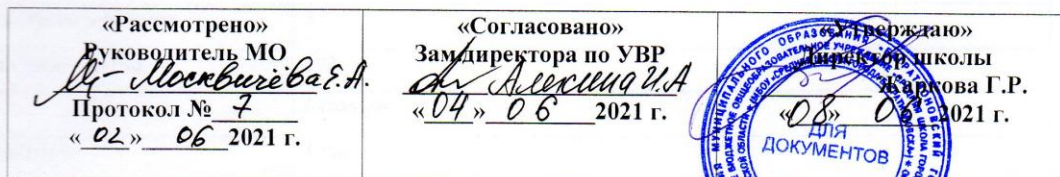 «Рассмотрено»
Руководитель МО
Москвичёва Е.А.
Протокол № 7
« 02 » 06 2021 г.
«Согласовано»
Зам.директора по УВР
Алехина И.А
« 04 » 06 2021 г.
«Утверждаю»
Директор школы
Жаркова Г.Р.
« 08 » 06 2021 г.
ДЛЯ
ДОКУМЕНТОВ